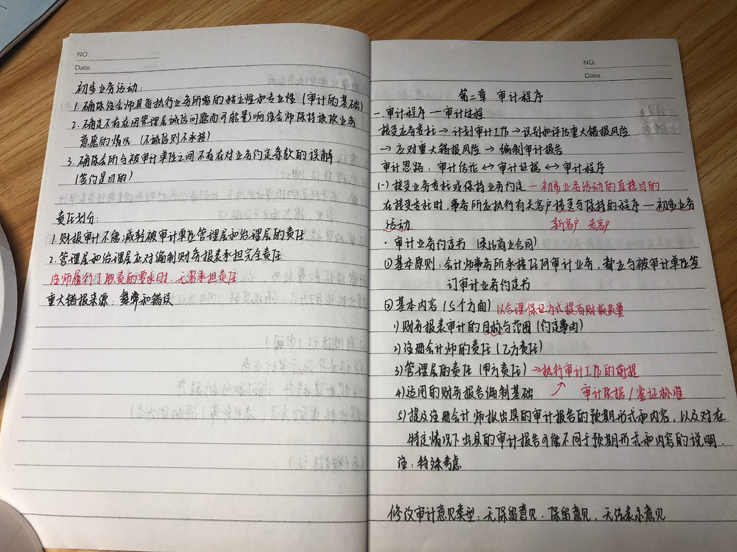 NO.
Date.
初步业务活动：
1. 确保注会师具备执行业务所需的独立性和专业性（审计的基础）
2. 确定不存在因管理层诚信问题而可能影响注会师保持该项业务
意愿的情况（不诚信则不承接）
3. 确保会所与被审计单位之间不存在对业务约定条款的误解
（签约是目的）
责任划分：
1. 财报审计不能减轻被审计单位管理层和治理层的责任
2. 管理层和治理层应对编制财务报表承担完全责任
注师履行了职责的要求时，无需承担责任
重大错报来源：舞弊和错误
NO.
Date
第二章 审计程序
一. 审计程序 — 审计过程
接受业务委托 → 计划审计工作 → 识别和评估重大错报风险
→ 应对重大错报风险 → 编制审计报告
审计思路：审计结论 ↔ 审计证据 ↔ 审计程序
(一) 接受业务委托或保持业务约定 — 初步业务活动的直接目的
在接受委托时，事务所应执行有关客户接受与保持的程序 — 初步业务
活动 新客户 老客户
· 审计业务约定书（类比商业合同）
① 基本原则：会计师事务所承接任何审计业务，都应与被审计单位签
订审计业务约定书
② 基本内容（5个方面）以合理保证方式提高财报质量
1) 财务报表审计的目标与范围（约定事由）
2) 注册会计师的责任（乙方责任）
3) 管理层的责任（甲方责任）→ 执行审计工作的前提
4) 适用的财务报告编制基础 ↗ 审计依据 / 鉴证标准
5) 提及注册会计师拟出具的审计报告的预期形式和内容，以及对在
特定情况下出具的审计报告可能不同于预期形式和内容的说明.
注：特殊考虑
修改审计意见类型：无保留意见. 保留意见. 无法表示意见